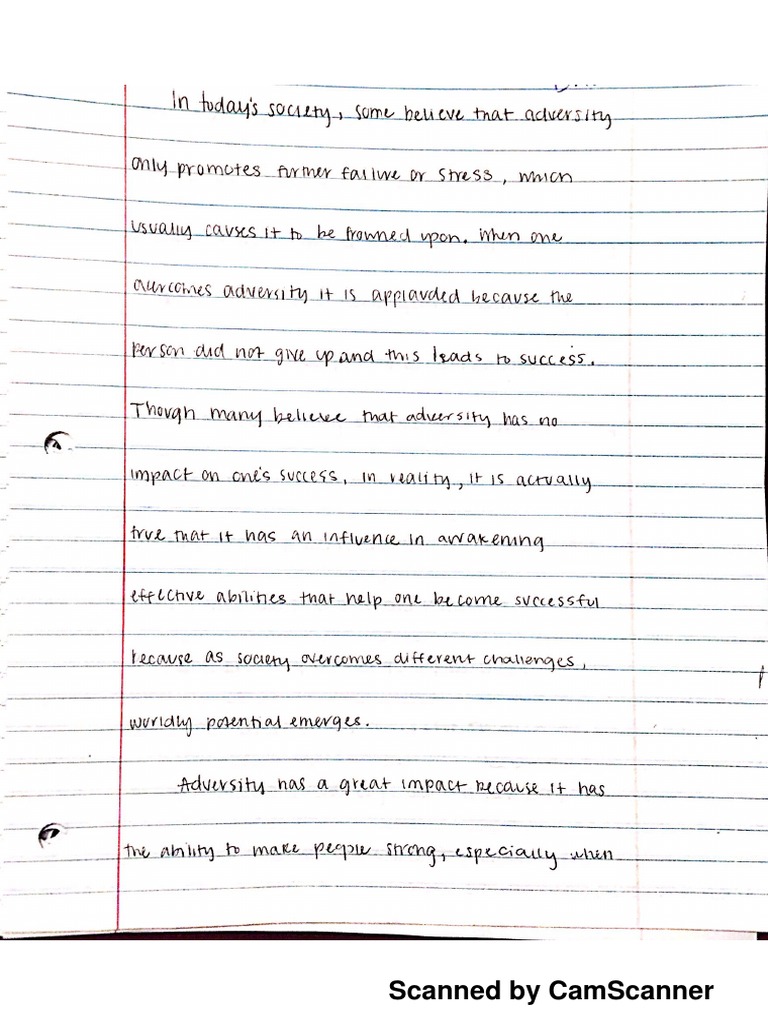 In today's society, some believe that adversity
only promotes further failure or stress, which
usually causes it to be frowned upon. When one
overcomes adversity it is applauded because the
person did not give up and this leads to success.
Though many believe that adversity has no
impact on one's success, in reality, it is actually
true that it has an influence in awakening
effective abilities that help one become successful
because as society overcomes different challenges,
worldly potential emerges.
Adversity has a great impact because it has
the ability to make people strong, especially when
Scanned by CamScanner